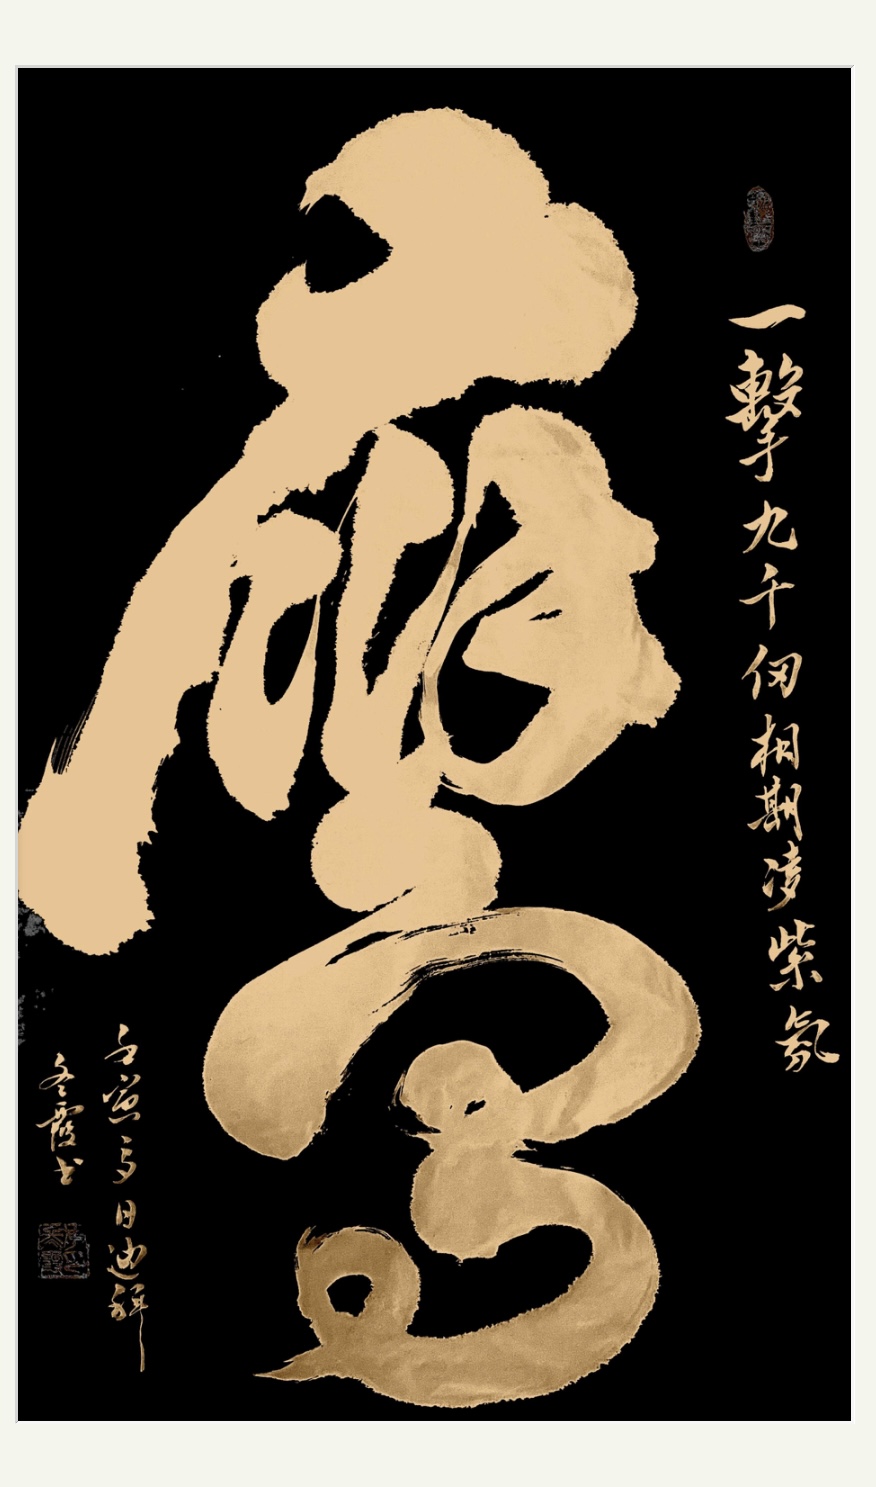 鷹
一擊九千仞相期凌紫氛
壬寅夏日迪
冬霞书